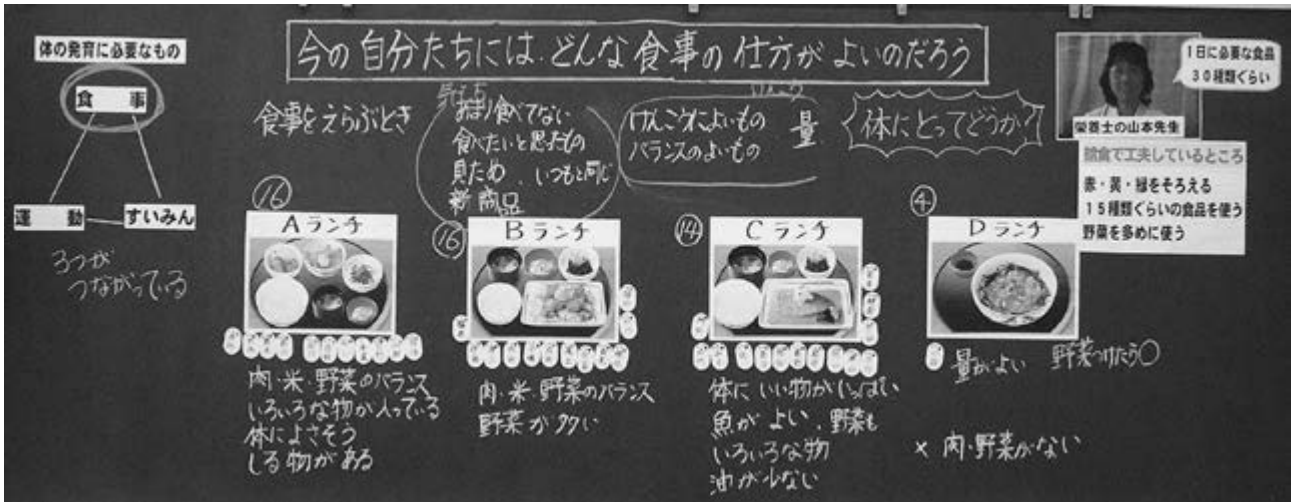 体の発育に必要なもの
食 事
運 動
すいみん
3つが
つながっている
今の自分たちには、どんな食事の仕方がよいのだろう
食事をえらぶとき
あまり食べてない
食べたいと思ったもの
見ため、いつもと同じ
新商品
けんこうによいもの
バランスのよいもの
量
体にとってどうか?
1日に必要な食品
30種類ぐらい
栄養士の山本先生
給食で工夫しているところ
赤・黄・緑をそろえる
15種類ぐらいの食品を使う
野菜を多めに使う
⑯
Aランチ
肉・米・野菜のバランス
いろいろな物が入っている
体によさそう
しる物がある
⑯
Bランチ
肉・米・野菜のバランス
野菜が多い
⑭
Cランチ
体にいい物がいっぱい
魚がよい、野菜も
いろいろな物
油が少ない
④
Dランチ
量がよい 野菜つけたら○
× 肉・野菜がない